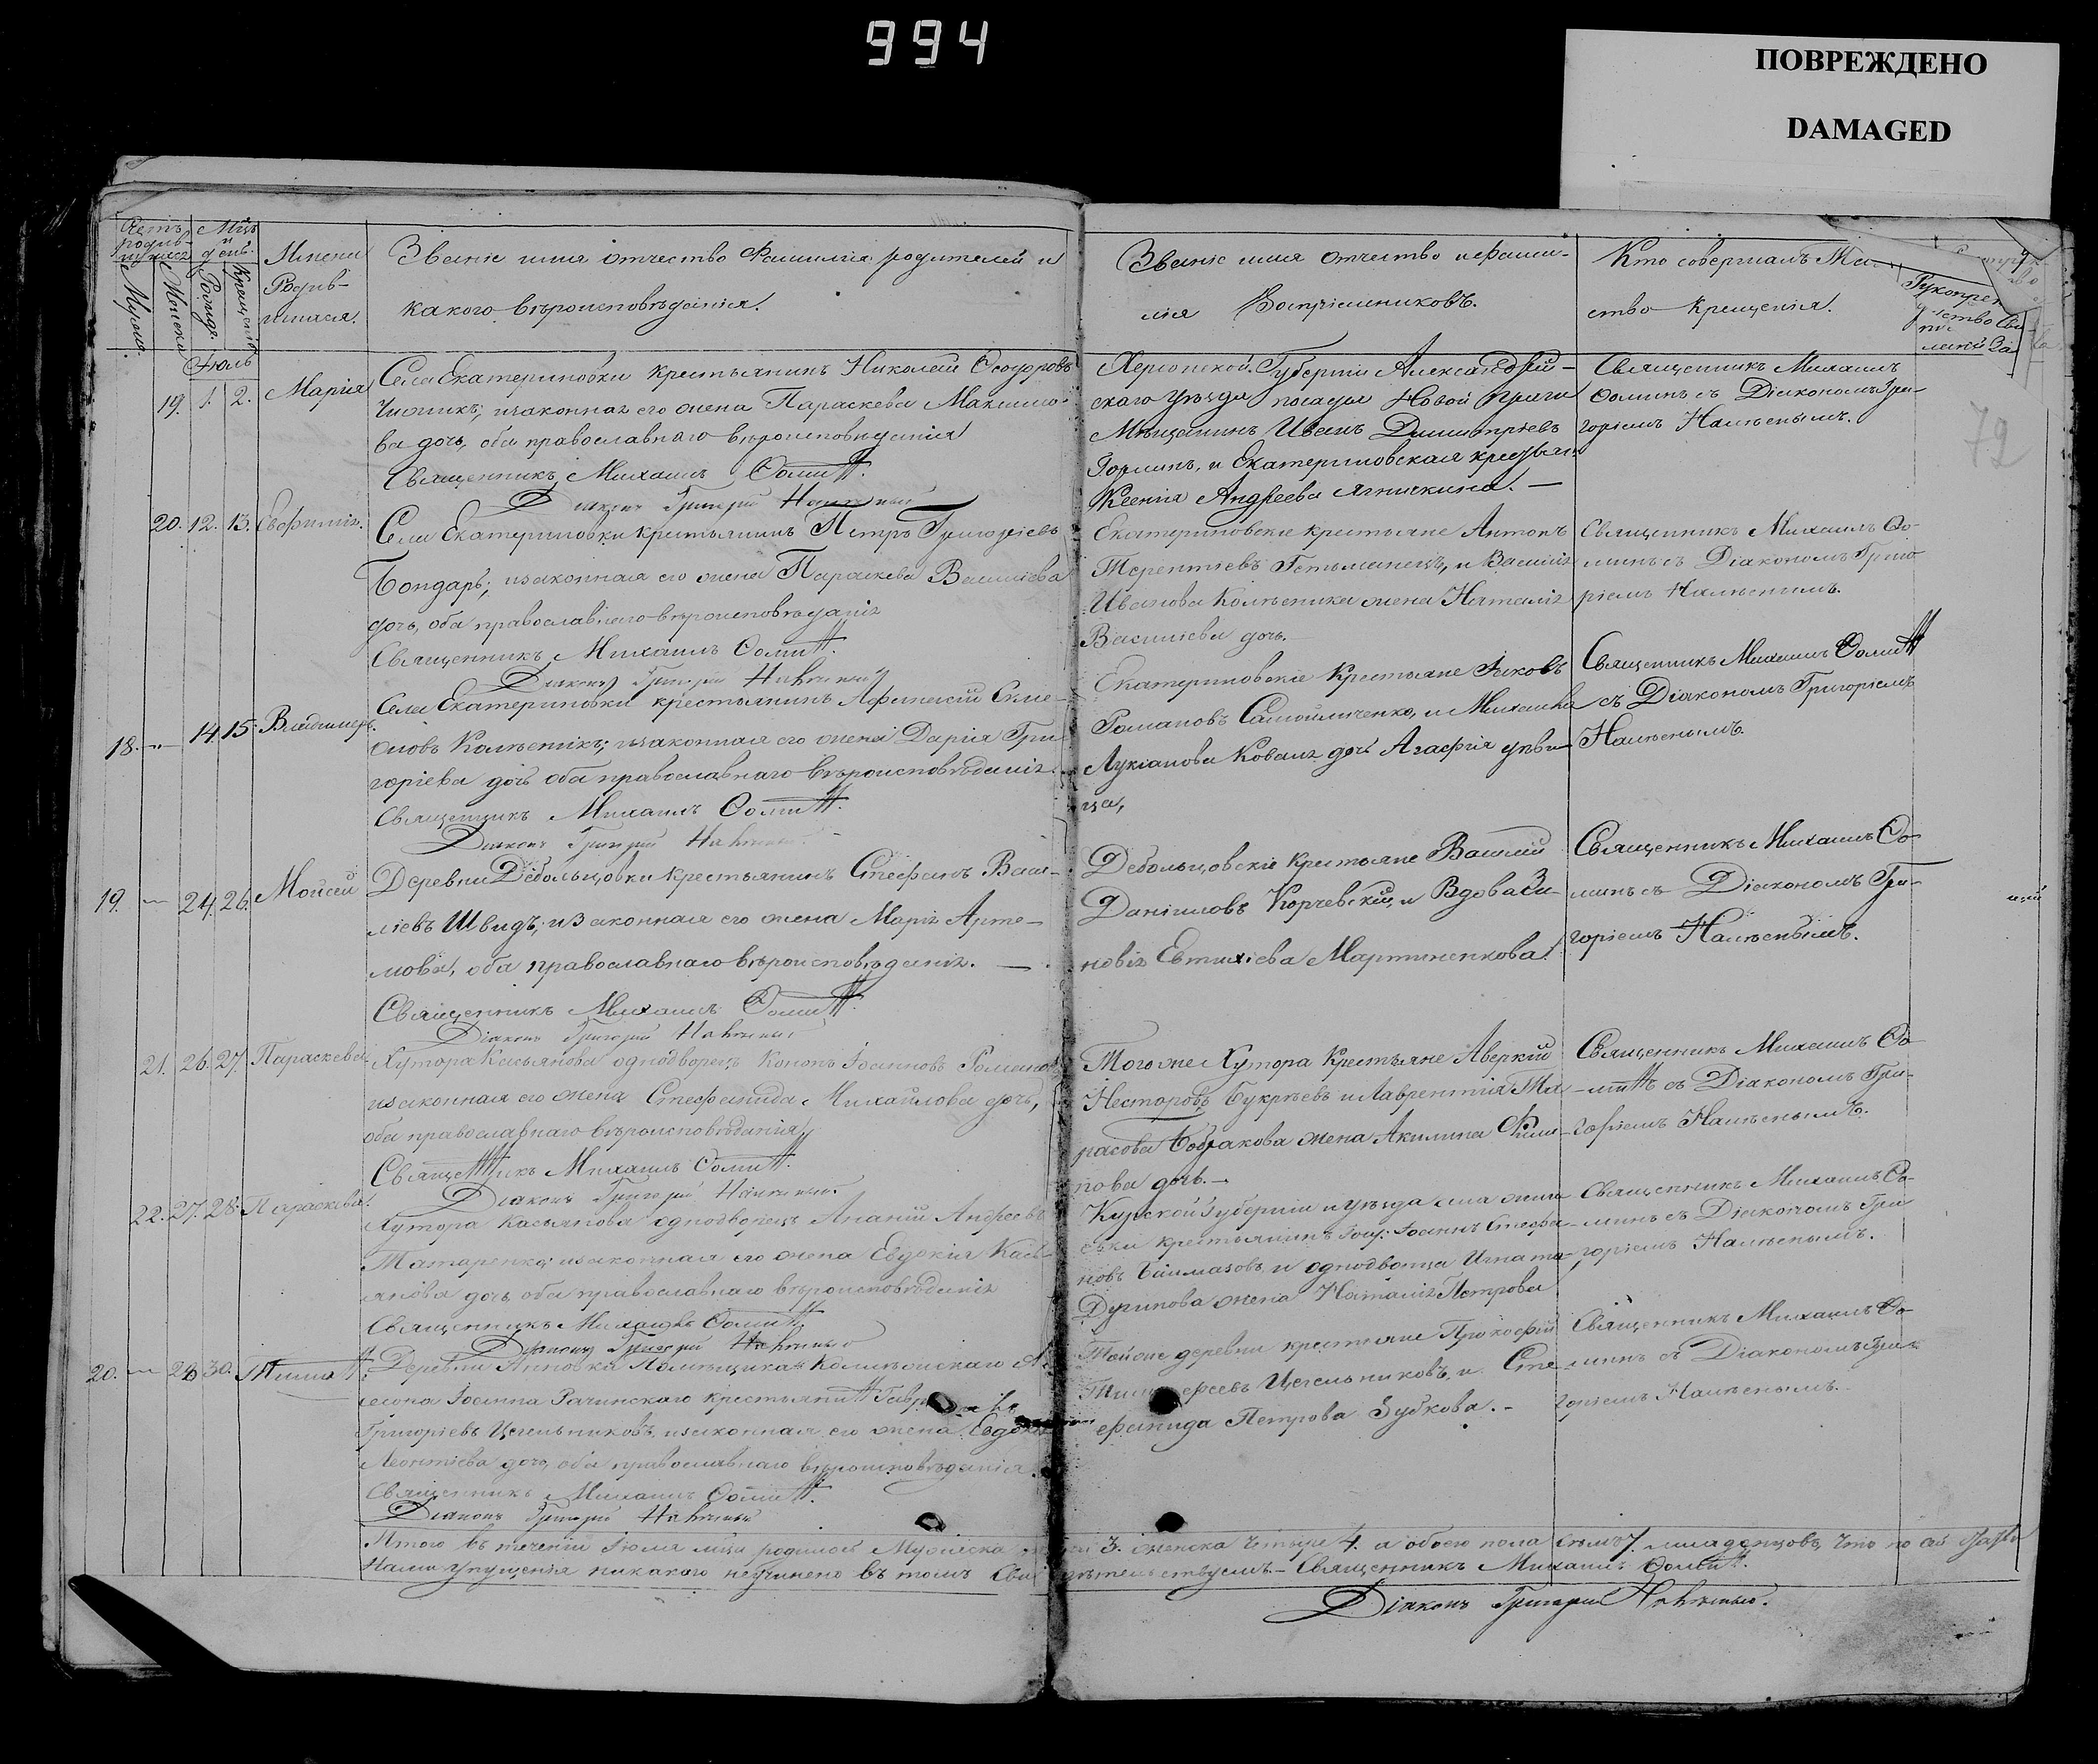 994
ПОВРЕЖДЕНО
DAMAGED
Имена
Родив-
шихся.
Званіе имя отчество Фамилія родителей и
какого вѣроисповѣданія.
Званіе имя отчество и фами-
лія Воспріемниковъ.
Кто совершалъ
ство крещенія.
Рукопри
Мужеска.
Женска
Рожде.
Крещенія
Іюль
79
19. 1. 2. Марія
Села Екатериновки крестьянинъ Николай Ѳеодоровъ
законная его жена Параскева Максимо-
ва дочь, оба православнаго вѣроисповѣданія
Священникъ Михаилъ Ѳоминъ.
Діаконъ Григорій
Херсонской Губерніи Александрій-
скаго уѣзда посада Новой Праги
Мѣщанинъ Иванъ Димитріевъ
и Екатериновская крестьян.
Ксенія Андреева Ягничкина. —
Священникъ Михаилъ
Ѳоминъ съ Діакономъ Гри-
горіемъ
20. 12. 13. Евфимія.
Села Екатериновки крестьянинъ Петръ Григоріевъ
Бондарь; и законная его жена Параскева Василіева
дочь, оба православнаго вѣроисповѣданія
Священникъ Михаилъ Ѳоминъ.
Діаконъ Григорій
Екатериновскіе крестьяне Антонъ
Терентіевъ Гетьманецъ, и Василія
Иванова Колѣсника жена Наталія
Василіева дочь.
Священникъ Михаилъ Ѳо-
минъ съ Діакономъ Григо
ріемъ
18. — 14. 15. Владимеръ.
Села Екатериновки крестьянинъ Афанасій Симе-
оновъ Колѣсникъ; и законная его жена Дарія Гри
горіева дочь оба православнаго вѣроисповѣданія.
Священникъ Михаилъ Ѳоминъ.
Діаконъ Григорій
Екатериновскіе Крестьяне Яковъ
Романовъ Самойличенко, и Михаила
Лукіанова Коваля дочь Агафія дѣви-
ца,
Священникъ Михаилъ Ѳоминъ
съ Діакономъ Григоріемъ
19. — 24. 26. Моисей
Деревни Дебольцовки крестьянинъ Стефанъ Васи-
ліевъ Швидъ; и законная его жена Марія Арте-
мова, оба православнаго вѣроисповѣданія. —
Священникъ Михаилъ Ѳоминъ.
Діаконъ Григорій
Дебольцовскіе крестьяне Василій
Даніиловъ Корчевскій, и Вдова Зи-
новія Евтихіева Мартиненкова.
Священникъ Михаилъ Ѳо-
минъ съ Діакономъ Гри-
горіемъ
21. 26. 27. Параскева
Хутора Касьянова однодворецъ Кононъ Іоанновъ
и законная его жена Стефанида Михайлова дочь,
оба православнаго вѣроисповѣданія
Священникъ Михаилъ Ѳоминъ.
Діаконъ Григорій
Того же Хутора Крестьяне Аверкій
Несторовъ Букрѣевъ и Лаврентія Та-
расова жена Акилина Фили-
пова дочь. —
Священникъ Михаилъ Ѳо
минъ съ Діакономъ Гри-
горіемъ
22. 27. 28. Параскева.
Хутора Касьянова однодворецъ Ананій Андреевъ
Татаренко; и законная его жена Евдокія Касі-
янова дочь оба православнаго вѣроисповѣданія
Священникъ Михаилъ Ѳоминъ.
Діаконъ Григорій
Курской Губерніи и уѣзда села
крестьянинъ Іоаннъ Стефа-
новъ и однодворца Игната
жена Наталія Петрова
Священникъ Михаилъ Ѳо-
минъ съ Діакономъ Гри
горіемъ
20. — 28 30.
Деревни Анновки Помѣщика
Іоанна Рачинскаго крестьянинъ
Григоріевъ Цегельниковъ, и законная его жена Евдокія
Леонтіева дочь, оба православнаго вѣроисповѣданія.
Священникъ Михаилъ Ѳоминъ.
Діаконъ Григорій
Той же деревни крестьяне Прокофій
Цегельниковъ, и Сте
фанида Петрова Зубкова. —
Священникъ Михаилъ Ѳо-
минъ съ Діакономъ Гри-
горіемъ
Итого въ теченіи Іюля мѣца родилось Мужеска 3. женска четыре 4. а обоего пола семь 7. младенцовъ, что по
Нами упущенія никакого неучинено въ томъ Свидѣтельствуемъ — Священникъ Михаилъ Ѳоминъ.
Діаконъ Григорій